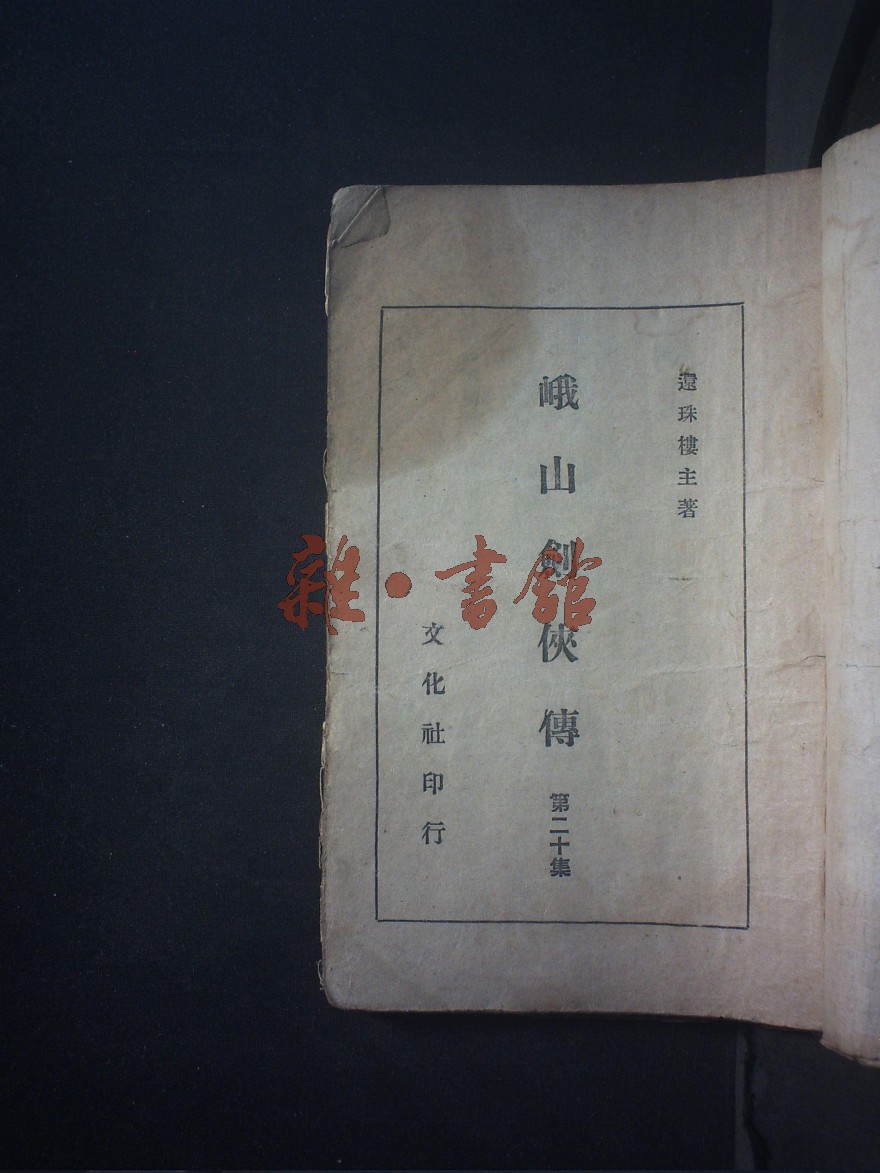 還珠樓主著
峨山劍俠傳 第二十集
文化社印行
雜·書館